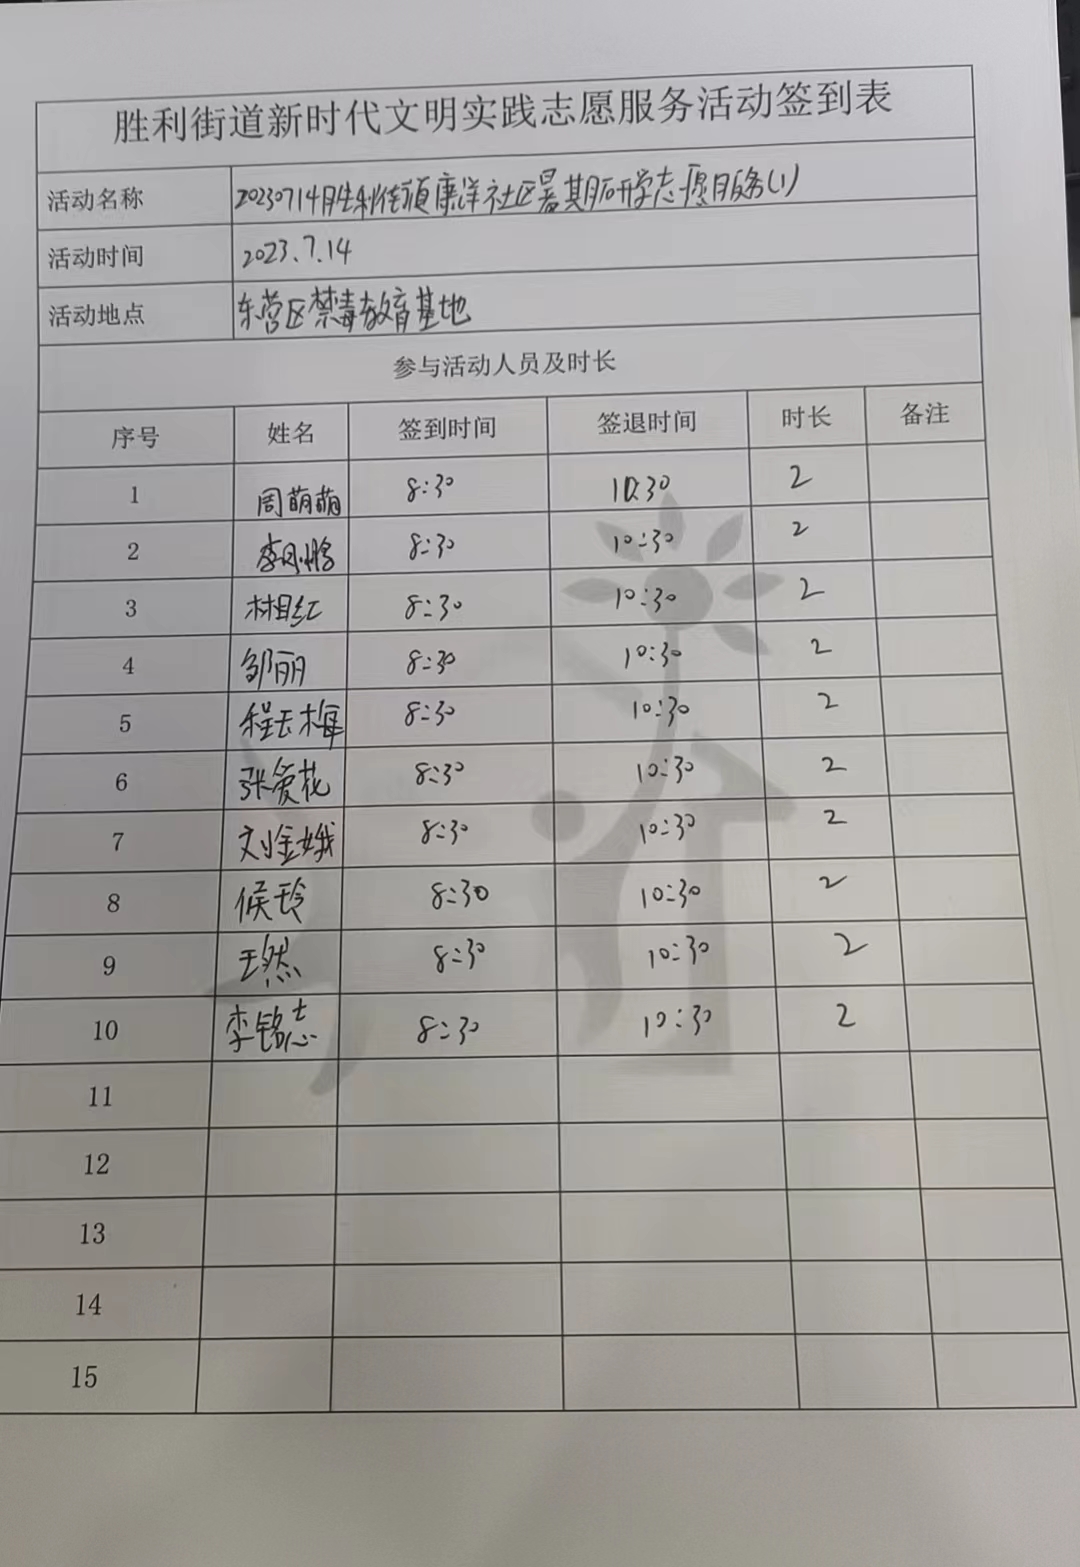 胜利街道新时代文明实践志愿服务活动签到表
活动名称 20230714胜利街道康洋社区暑期研学志愿服务(1)
活动时间 2023.7.14
活动地点 东营区禁毒教育基地
参与活动人员及时长
序号 姓名 签到时间 签退时间 时长 备注
1 周萌萌 8:30 10:30 2
2 李凤鹏 8:30 10:30 2
3 林红 8:30 10:30 2
4 邹丽 8:30 10:30 2
5 程玉梅 8:30 10:30 2
6 张爱花 8:30 10:30 2
7 刘金娥 8:30 10:30 2
8 侯玲 8:30 10:30 2
9 王然 8:30 10:30 2
10 李铭志 8:30 10:30 2
11
12
13
14
15